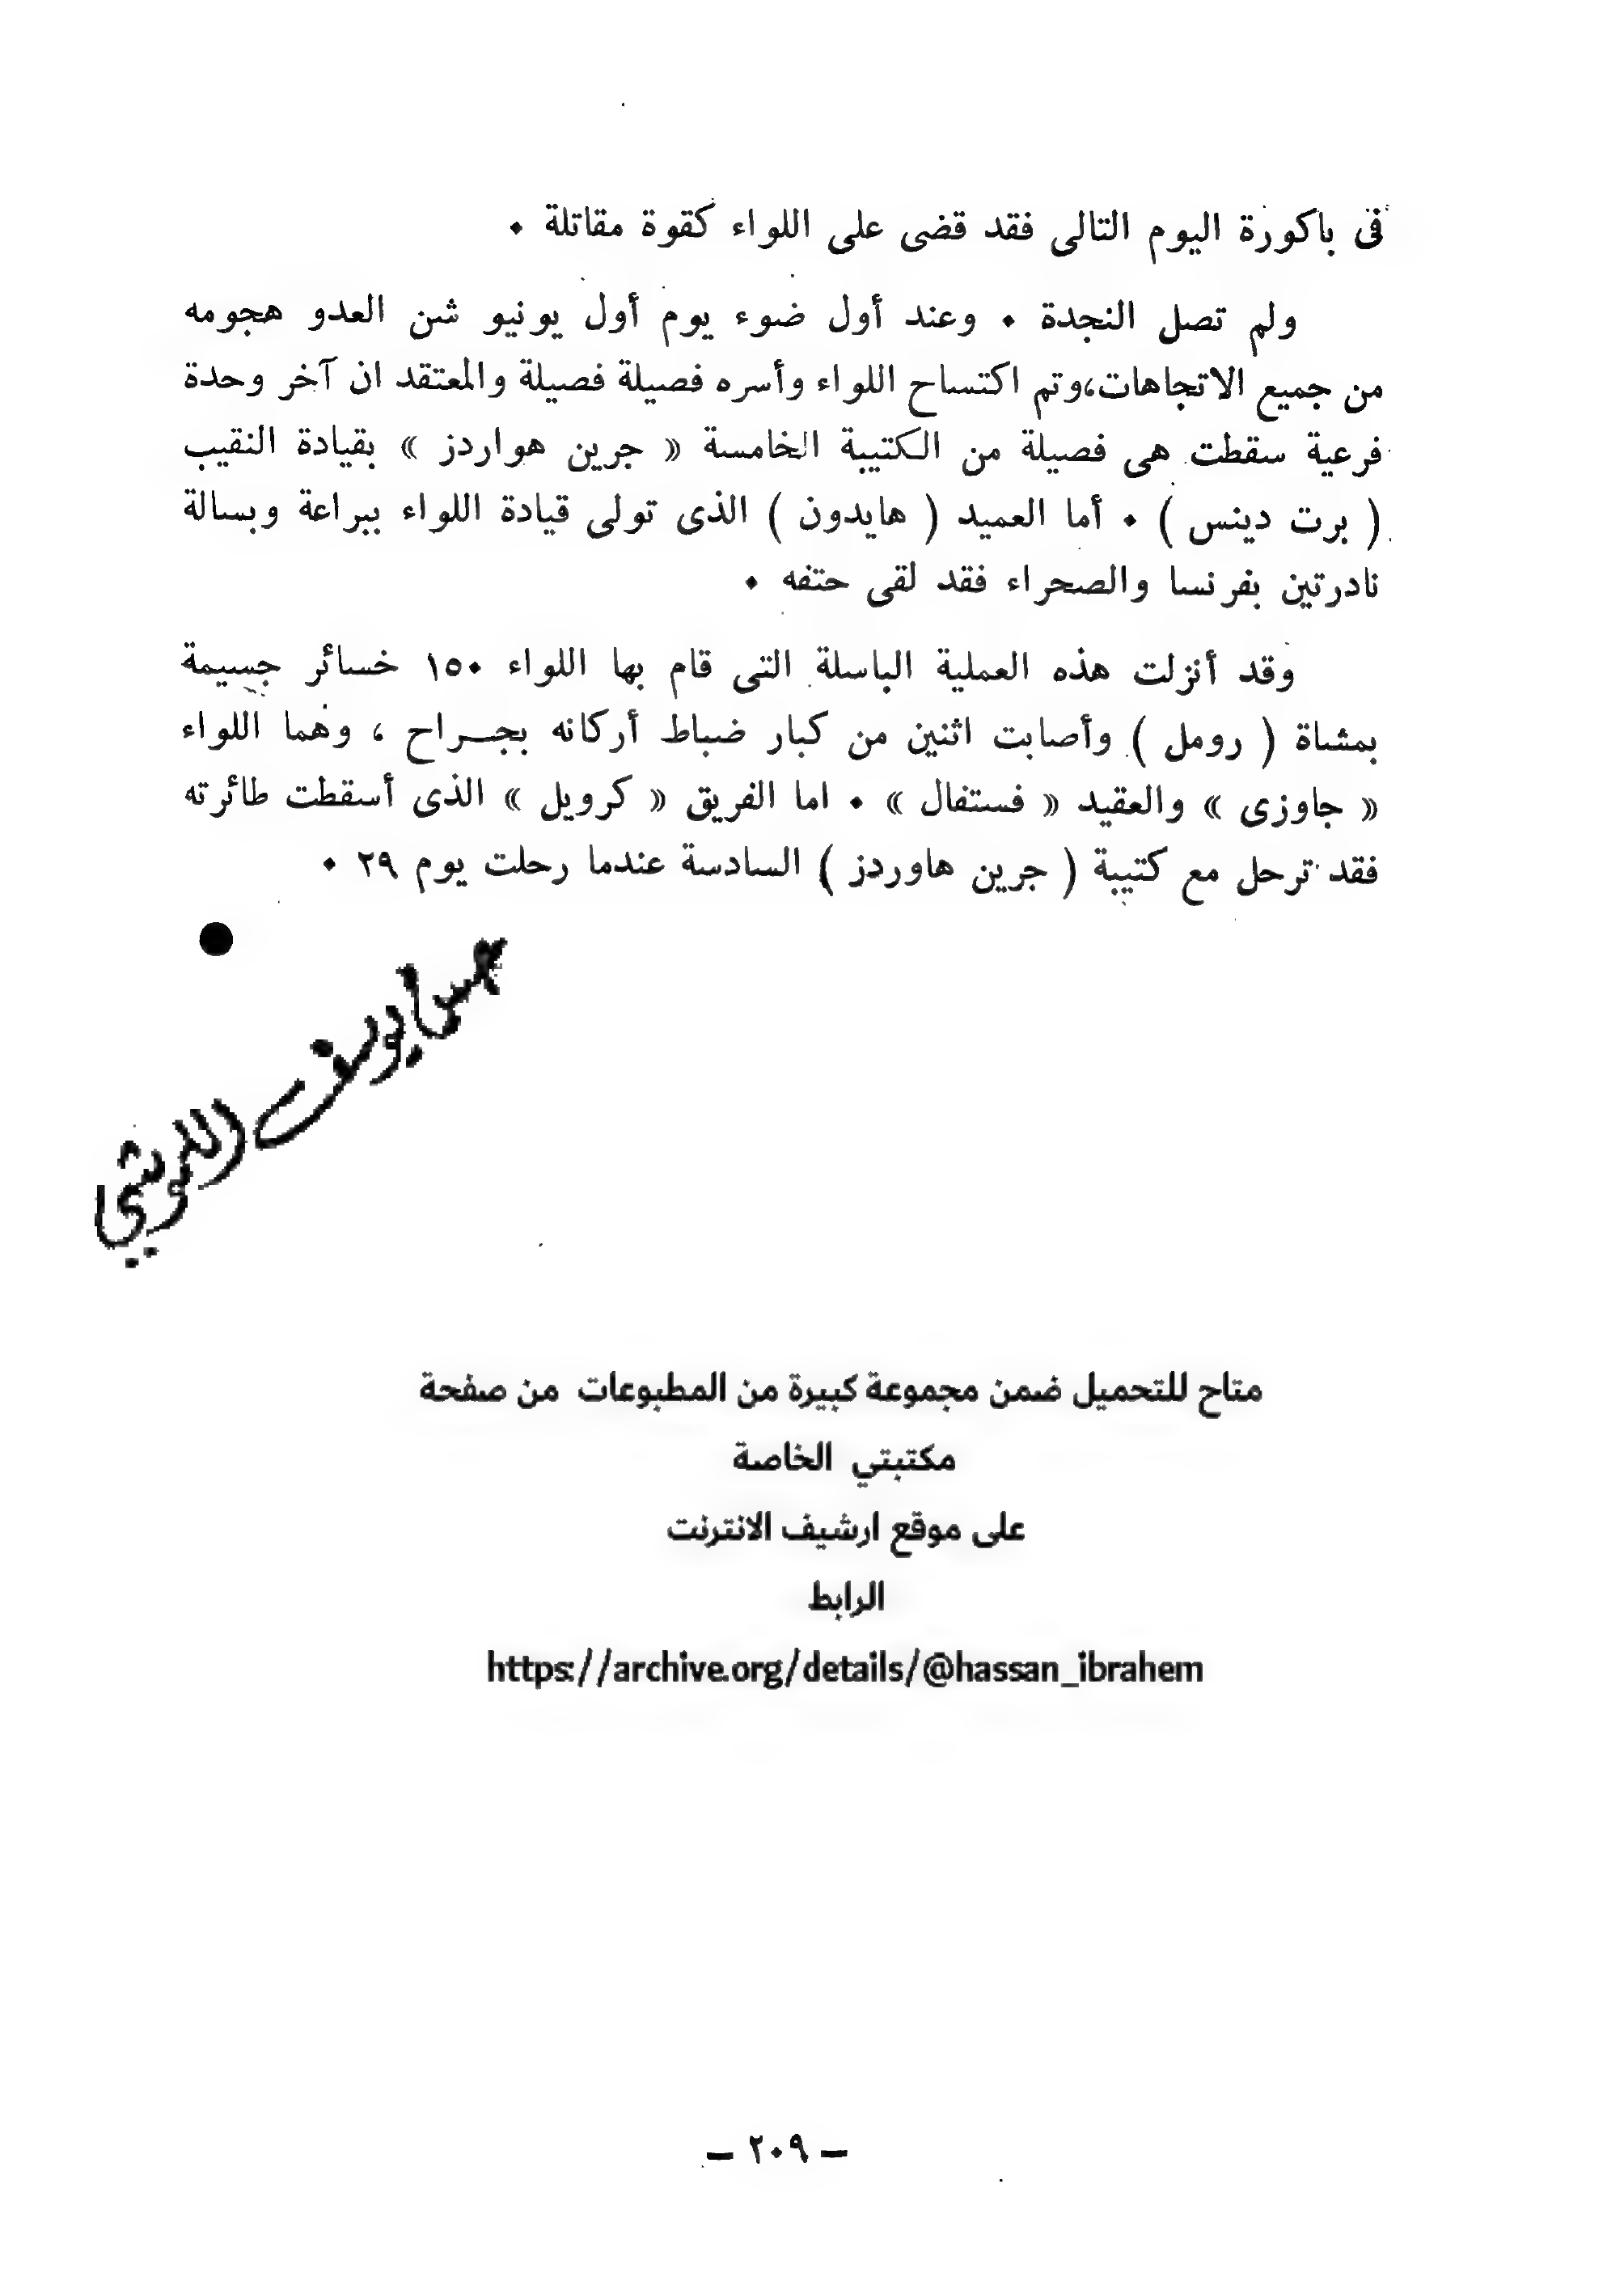 فى باكورة اليوم التالى فقد قضى على اللواء كقوة مقاتلة ٠
ولم تصل النجدة ٠ وعند أول ضوء يوم أول يونيو شن العدو هجومه
من جميع الاتجاهات،وتم اكتساح اللواء وأسره فصيلة فصيلة والمعتقد ان آخر وحدة
فرعية سقطت هى فصيلة من الكتيبة الخامسة « جرين هواردز » بقيادة النقيب
( برت دينس ) ٠ أما العميد ( هايدون ) الذى تولى قيادة اللواء ببراعة وبسالة
نادرتين بفرنسا والصحراء فقد لقى حتفه ٠
وقد أنزلت هذه العملية الباسلة التى قام بها اللواء ١٥٠ خسائر جسيمة
بمشاة ( رومل ) وأصابت اثنين من كبار ضباط أركانه بجـــراح ، وهما اللواء
« جاوزى » والعقيد « فستفال » ٠ اما الفريق « كرويل » الذى أسقطت طائرته
فقد ترحل مع كتيبة ( جرين هاوردز ) السادسة عندما رحلت يوم ٢٩ ٠
يوسف
متاح للتحميل ضمن مجموعة كبيرة من المطبوعات من صفحة
مكتبتي الخاصة
على موقع ارشيف الانترنت
الرابط
https://archive.org/details/@hassan_ibrahem
— ٢٠٩ —